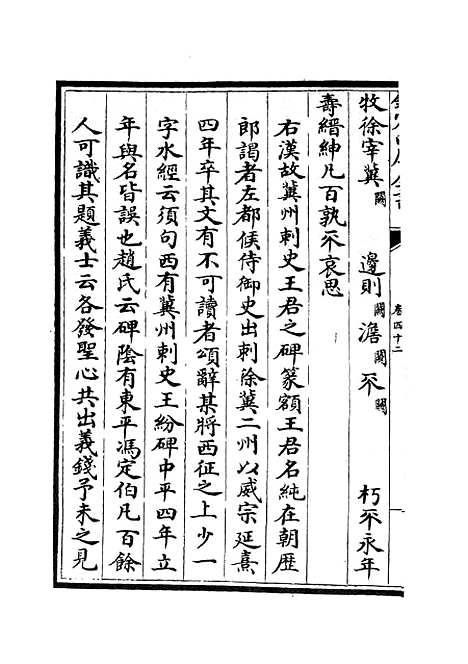 卷四十二
牧徐宰冀闕　邊則闕澹闕不闕　朽不永年
壽縉紳凡百孰不哀思
右漢故冀州刺史王君之碑篆額王君名純在朝歷
郎謁者左都候侍御史出刺徐冀二州以威宗延熹
四年卒其文有不可讀者頌辭某將西征之上少一
字水經云須句西有冀州刺史王紛碑中平四年立
年與名皆誤也趙氏云碑陰有東平馮定伯凡百餘
人可識其題義士云各發聖心共出義錢予未之見